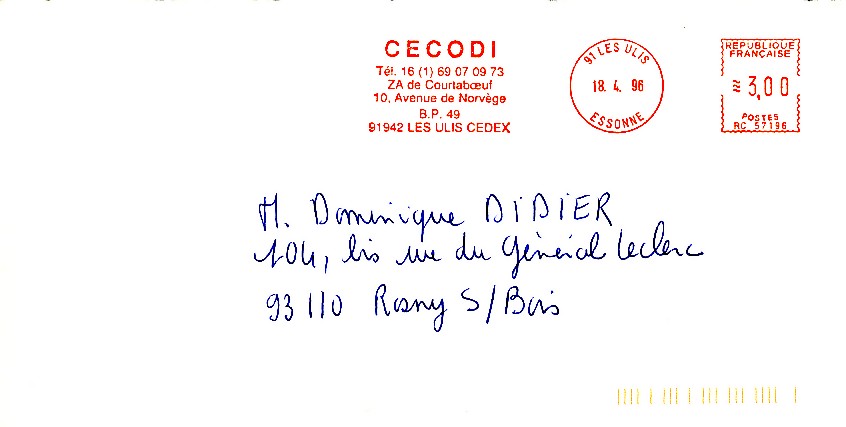 CECODI
Tél. 16 (1) 69 07 09 73
ZA de Courtabœuf
10, Avenue de Norvège
B.P. 49
91942 LES ULIS CEDEX
91 LES ULIS
18. 4. 96
ESSONNE
REPUBLIQUE
FRANÇAISE
≈ 3,00
POSTES
RC 57196
M. Dominique DIDIER
104, bis rue du Général Leclerc
93 110 Rosny S/Bois